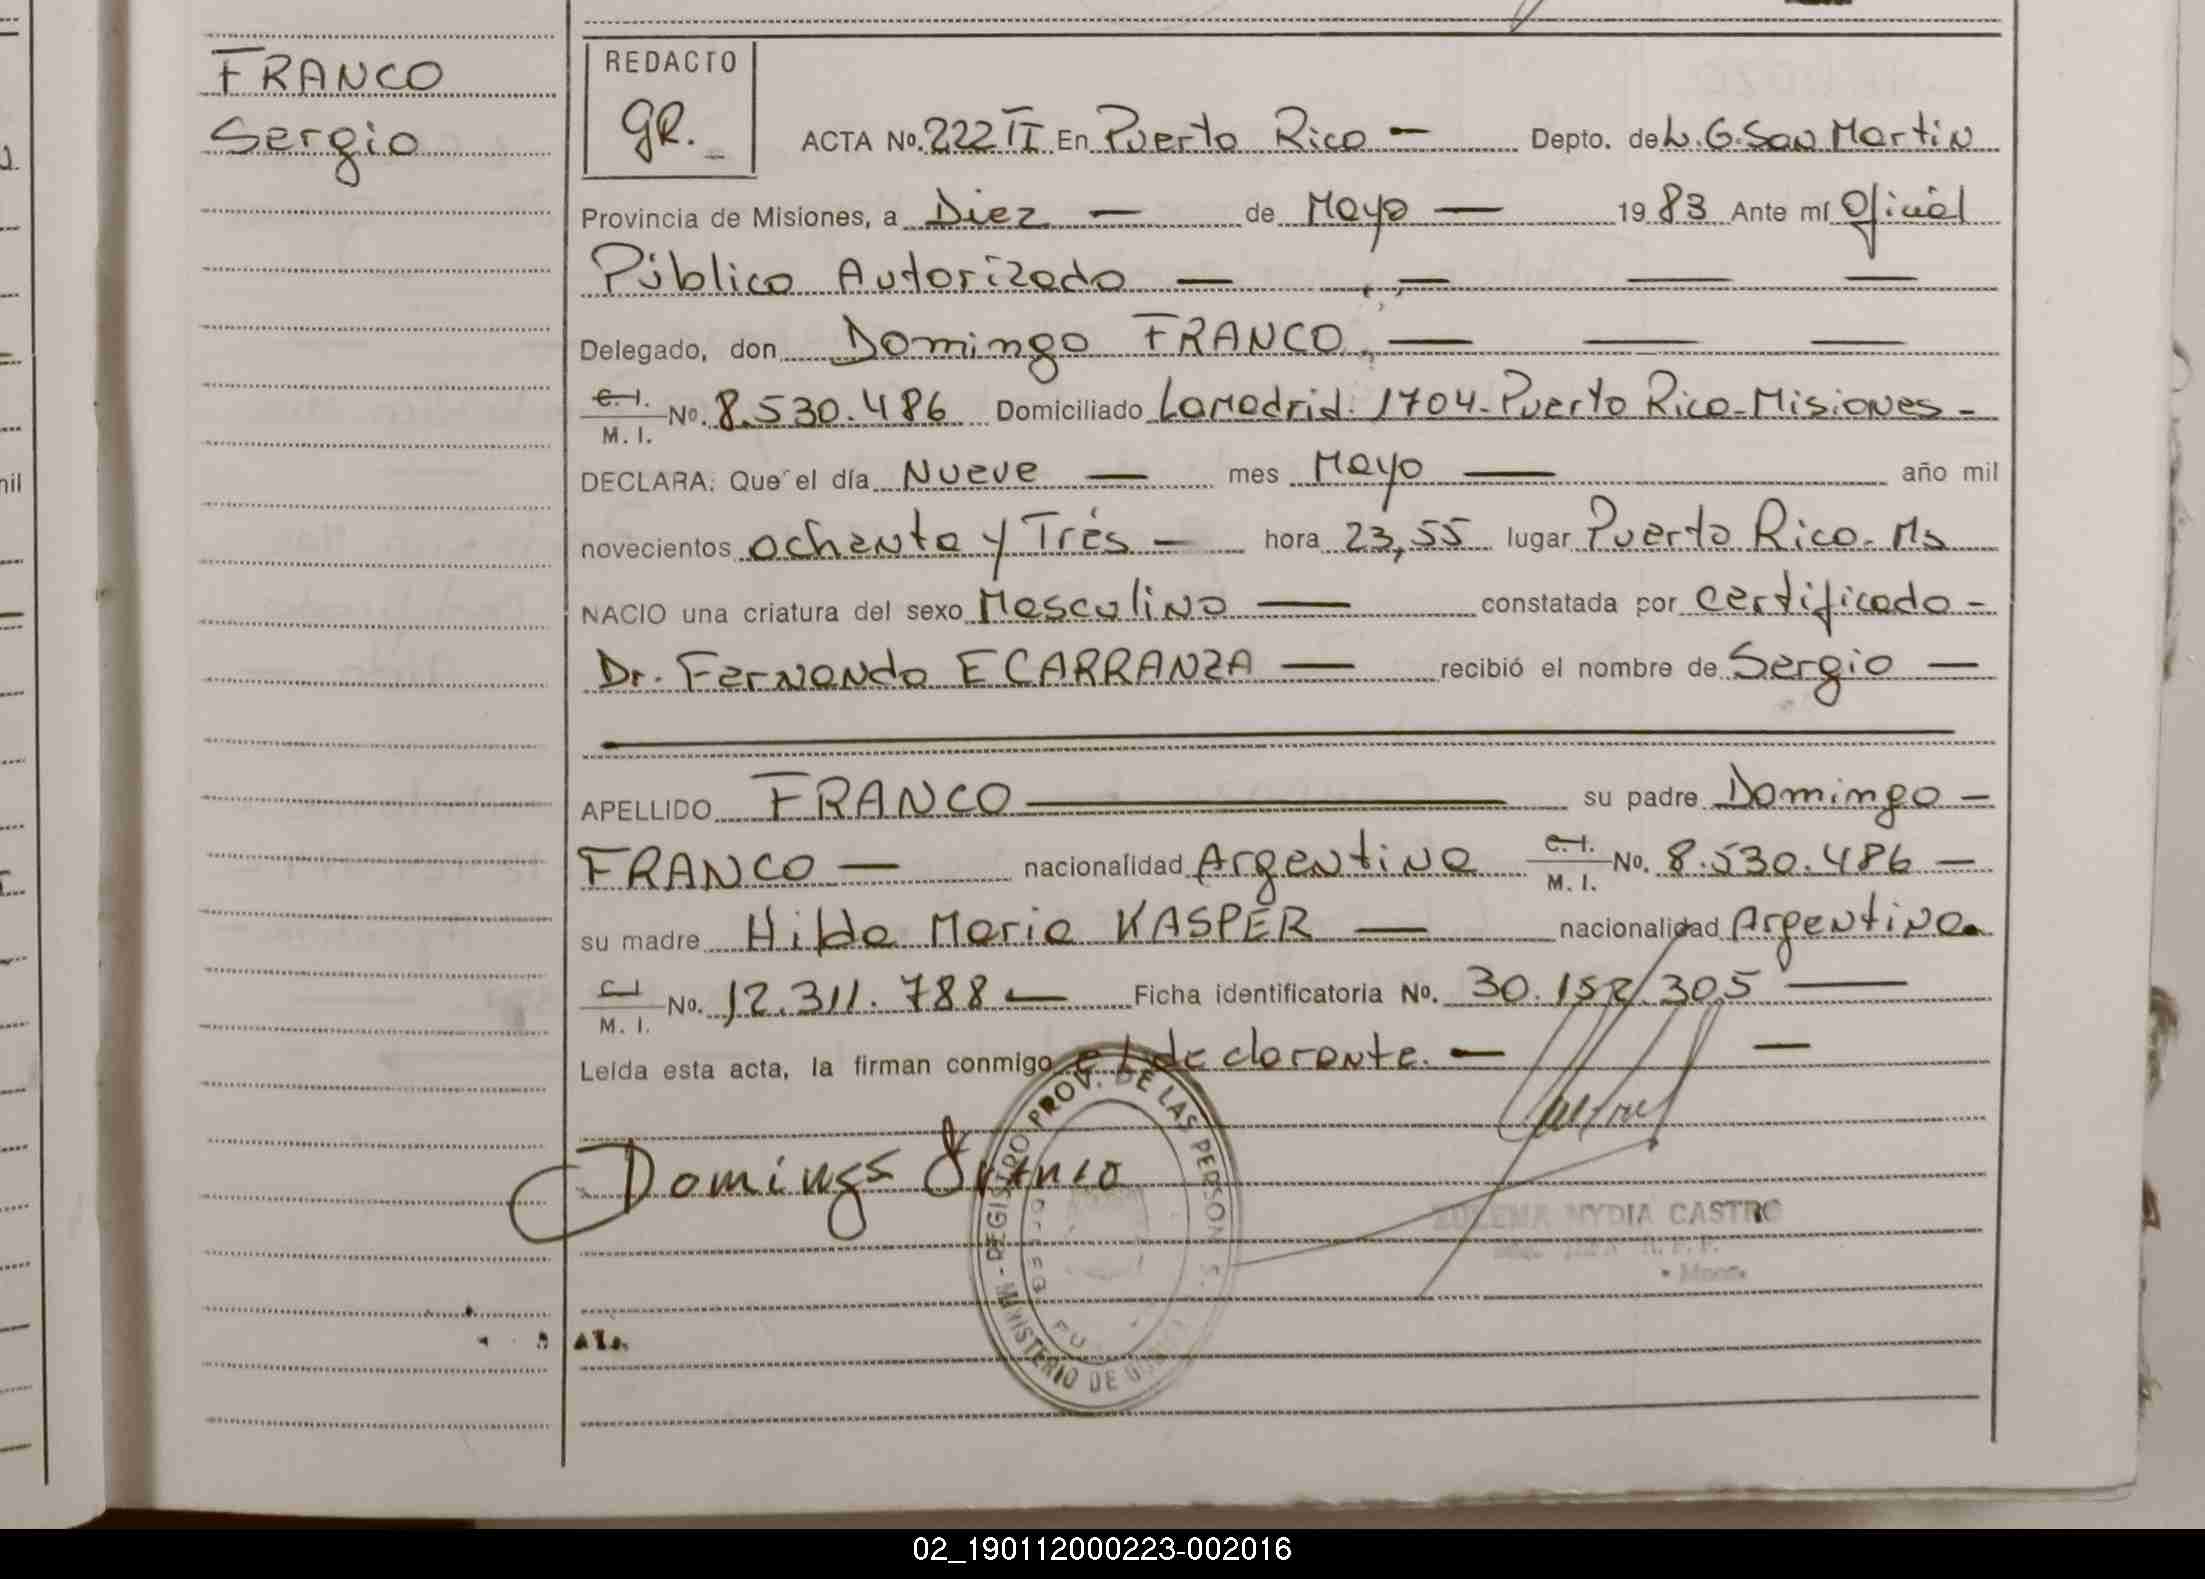 FRANCO
Sergio
REDACTO
GR.
ACTA No. 222 II En Puerto Rico — Depto. de L. G. San Martin
Provincia de Misiones, a Diez — de Mayo — 19 83 Ante mí Oficial
Público Autorizado — — — —
Delegado, don Domingo FRANCO. — — —
C. I. / M. I. No. 8.530.486 Domiciliado Lamadrid 1704- Puerto Rico-Misiones-
DECLARA: Que el día Nueve — mes Mayo — año mil
novecientos ochenta y Trés — hora 23,55 lugar Puerto Rico- Ms
NACIO una criatura del sexo Masculino — constatada por certificado -
Dr. Fernando ECARRANZA — recibió el nombre de Sergio —
APELLIDO FRANCO — su padre Domingo -
FRANCO — nacionalidad Argentina C. I. / M. I. No. 8.530.486 —
su madre Hilda Maria KASPER — nacionalidad Argentina.
C I / M. I. No. 12.311.788 — Ficha identificatoria No. 30.152.305 —
Leída esta acta, la firman conmigo el declarante. — —
Domingo Franco
- REGISTRO PROV. DE LAS PERSON
MINISTERIO DE
ZULEMA NYDIA CASTRO
nil
02_190112000223-002016